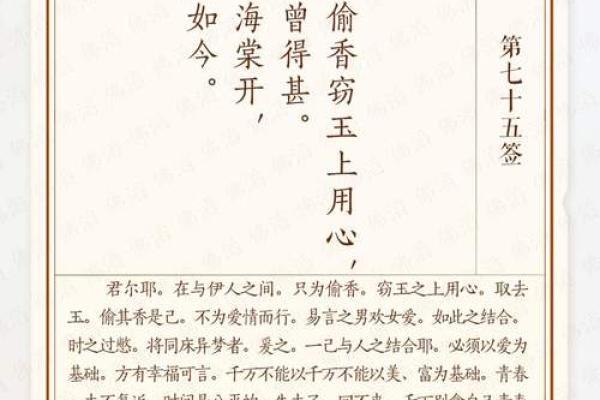 第七十五签
偷香窃玉上用心，
曾得甚。
海棠开，
如今。
君尔耶。在与伊人之间。只为偷香。窃玉之上用心。取去
玉。偷其香是己。不为爱情而行。易言之男欢女爱。如此之结合。
时之过憋。将同床异梦者。爰之。一己与人之结合耶。必须以爱为
基础。方有幸福可言。千万不能以千万不能以美、富为基础。青春